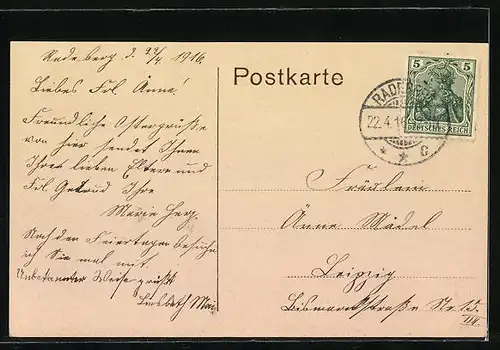 Radeberg d. 22/4 1916
Liebes Frl Änne!
Freundliche Ostergrüße
von hier sendet Ihnen
Ihren lieben Eltern und
Frl Getrud Ihre
Marie
Nach den Feiertagen besuche
ich Sie mal mit.
Unbekannter Weise grüßt
Lisbeth
Postkarte
RADEBERG
22.4.16
* * C
5 5
DEUTSCHES REICH
Fräulein
Änne Mädel
Leipzig
Bismarckstraße Nr.
III.